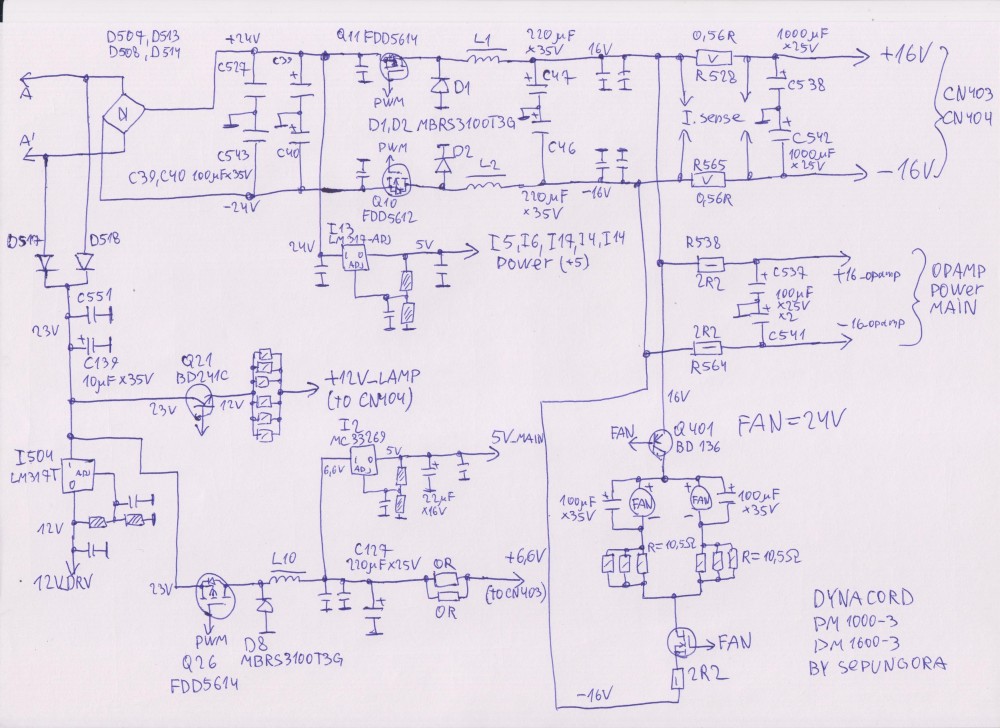 D507, D513
D508, D514
+24V
C527
C39
Q11 FDD5614
PWM
L1
D1
220µF
x35V
C47
16V
0,56R
R528
1000µF
x25V
C538
+16V
CN403
CN404
A
A'
C543
C40
C39, C40 100µFx35V
-24V
D1,D2 MBRS3100T3G
PWM
Q10
FDD5612
D2
L2
C46
220µF
x35V
-16V
I.sense
R565
0,56R
C542
1000µF
x25V
-16V
D517
D518
I13
LM317-ADJ
24V
I
O
ADJ
5V
I5,I6,I17,I4,I14
Power (+5)
R538
2R2
C537
100µF
x25V
x2
C541
+16-opamp
-16-opamp
OPAMP
Power
MAIN
2R2
R564
C551
23V
C139
10µFx35V
Q21
BD241C
23V
12V
+12V_LAMP
(TO CN404)
16V
FAN
Q401
BD 136
FAN=24V
I2
MC33269
6,6V
I
O
ADJ
5V
22µF
x16V
5V_MAIN
I504
LM317T
I
ADJ
O
12V
12VDRV
23V
PWM
Q26
FDD5614
L10
D8
MBRS3100T3G
C127
220µFx25V
0R
0R
+6,6V
(TO CN403)
100µF
x35V
FAN
FAN
100µF
x35V
R=10,5Ω
R=10,5Ω
FAN
2R2
-16V
DYNACORD
PM 1000-3
PM 1600-3
BY SEPUNGORA